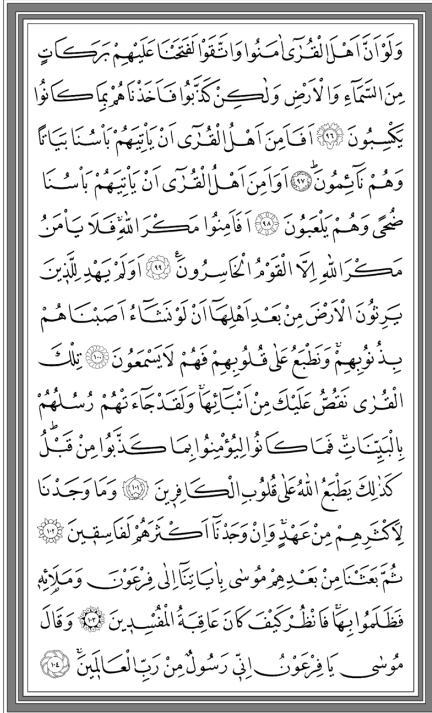 وَلَوْ اَنَّ اَهْلَ الْقُرٰٓى اٰمَنُوا وَاتَّقَوْا لَفَتَحْنَا عَلَيْهِمْ بَرَكَاتٍ
مِنَ السَّمَٓاءِ وَالْاَرْضِ وَلٰكِنْ كَذَّبُوا فَاَخَذْنَاهُمْ بِمَا كَانُوا
يَكْسِبُونَ ﴿٩٦﴾ اَفَاَمِنَ اَهْلُ الْقُرٰٓى اَنْ يَأْتِيَهُمْ بَأْسُنَا بَيَاتًا
وَهُمْ نَٓائِمُونَۜ ﴿٩٧﴾ اَوَاَمِنَ اَهْلُ الْقُرٰٓى اَنْ يَأْتِيَهُمْ بَأْسُنَا
ضُحًى وَهُمْ يَلْعَبُونَ ﴿٩٨﴾ اَفَاَمِنُوا مَكْرَ اللّٰهِۚ فَلَا يَأْمَنُ
مَكْرَ اللّٰهِ اِلَّا الْقَوْمُ الْخَاسِرُونَ۟ ﴿٩٩﴾ اَوَلَمْ يَهْدِ لِلَّذ۪ينَ
يَرِثُونَ الْاَرْضَ مِنْ بَعْدِ اَهْلِهَٓا اَنْ لَوْ نَشَٓاءُ اَصَبْنَاهُمْ
بِذُنُوبِهِمْۚ وَنَطْبَعُ عَلٰى قُلُوبِهِمْ فَهُمْ لَا يَسْمَعُونَ ﴿١٠٠﴾ تِلْكَ
الْقُرٰى نَقُصُّ عَلَيْكَ مِنْ اَنْبَٓائِهَاۚ وَلَقَدْ جَٓاءَتْهُمْ رُسُلُهُمْ
بِالْبَيِّنَاتِۚ فَمَا كَانُوا لِيُؤْمِنُوا بِمَا كَذَّبُوا مِنْ قَبْلُۜ
كَذٰلِكَ يَطْبَعُ اللّٰهُ عَلٰى قُلُوبِ الْكَافِر۪ينَ ﴿١٠١﴾ وَمَا وَجَدْنَا
لِاَكْثَرِهِمْ مِنْ عَهْدٍۚ وَاِنْ وَجَدْنَٓا اَكْثَرَهُمْ لَفَاسِق۪ينَ ﴿١٠٢﴾
ثُمَّ بَعَثْنَا مِنْ بَعْدِهِمْ مُوسٰى بِاٰيَاتِنَٓا اِلٰى فِرْعَوْنَ وَمَلَا۬ئِه۪
فَظَلَمُوا بِهَاۚ فَانْظُرْ كَيْفَ كَانَ عَاقِبَةُ الْمُفْسِد۪ينَ ﴿١٠٣﴾ وَقَالَ
مُوسٰى يَا فِرْعَوْنُ اِنّ۪ي رَسُولٌ مِنْ رَبِّ الْعَالَم۪ينَۙ ﴿١٠٤﴾